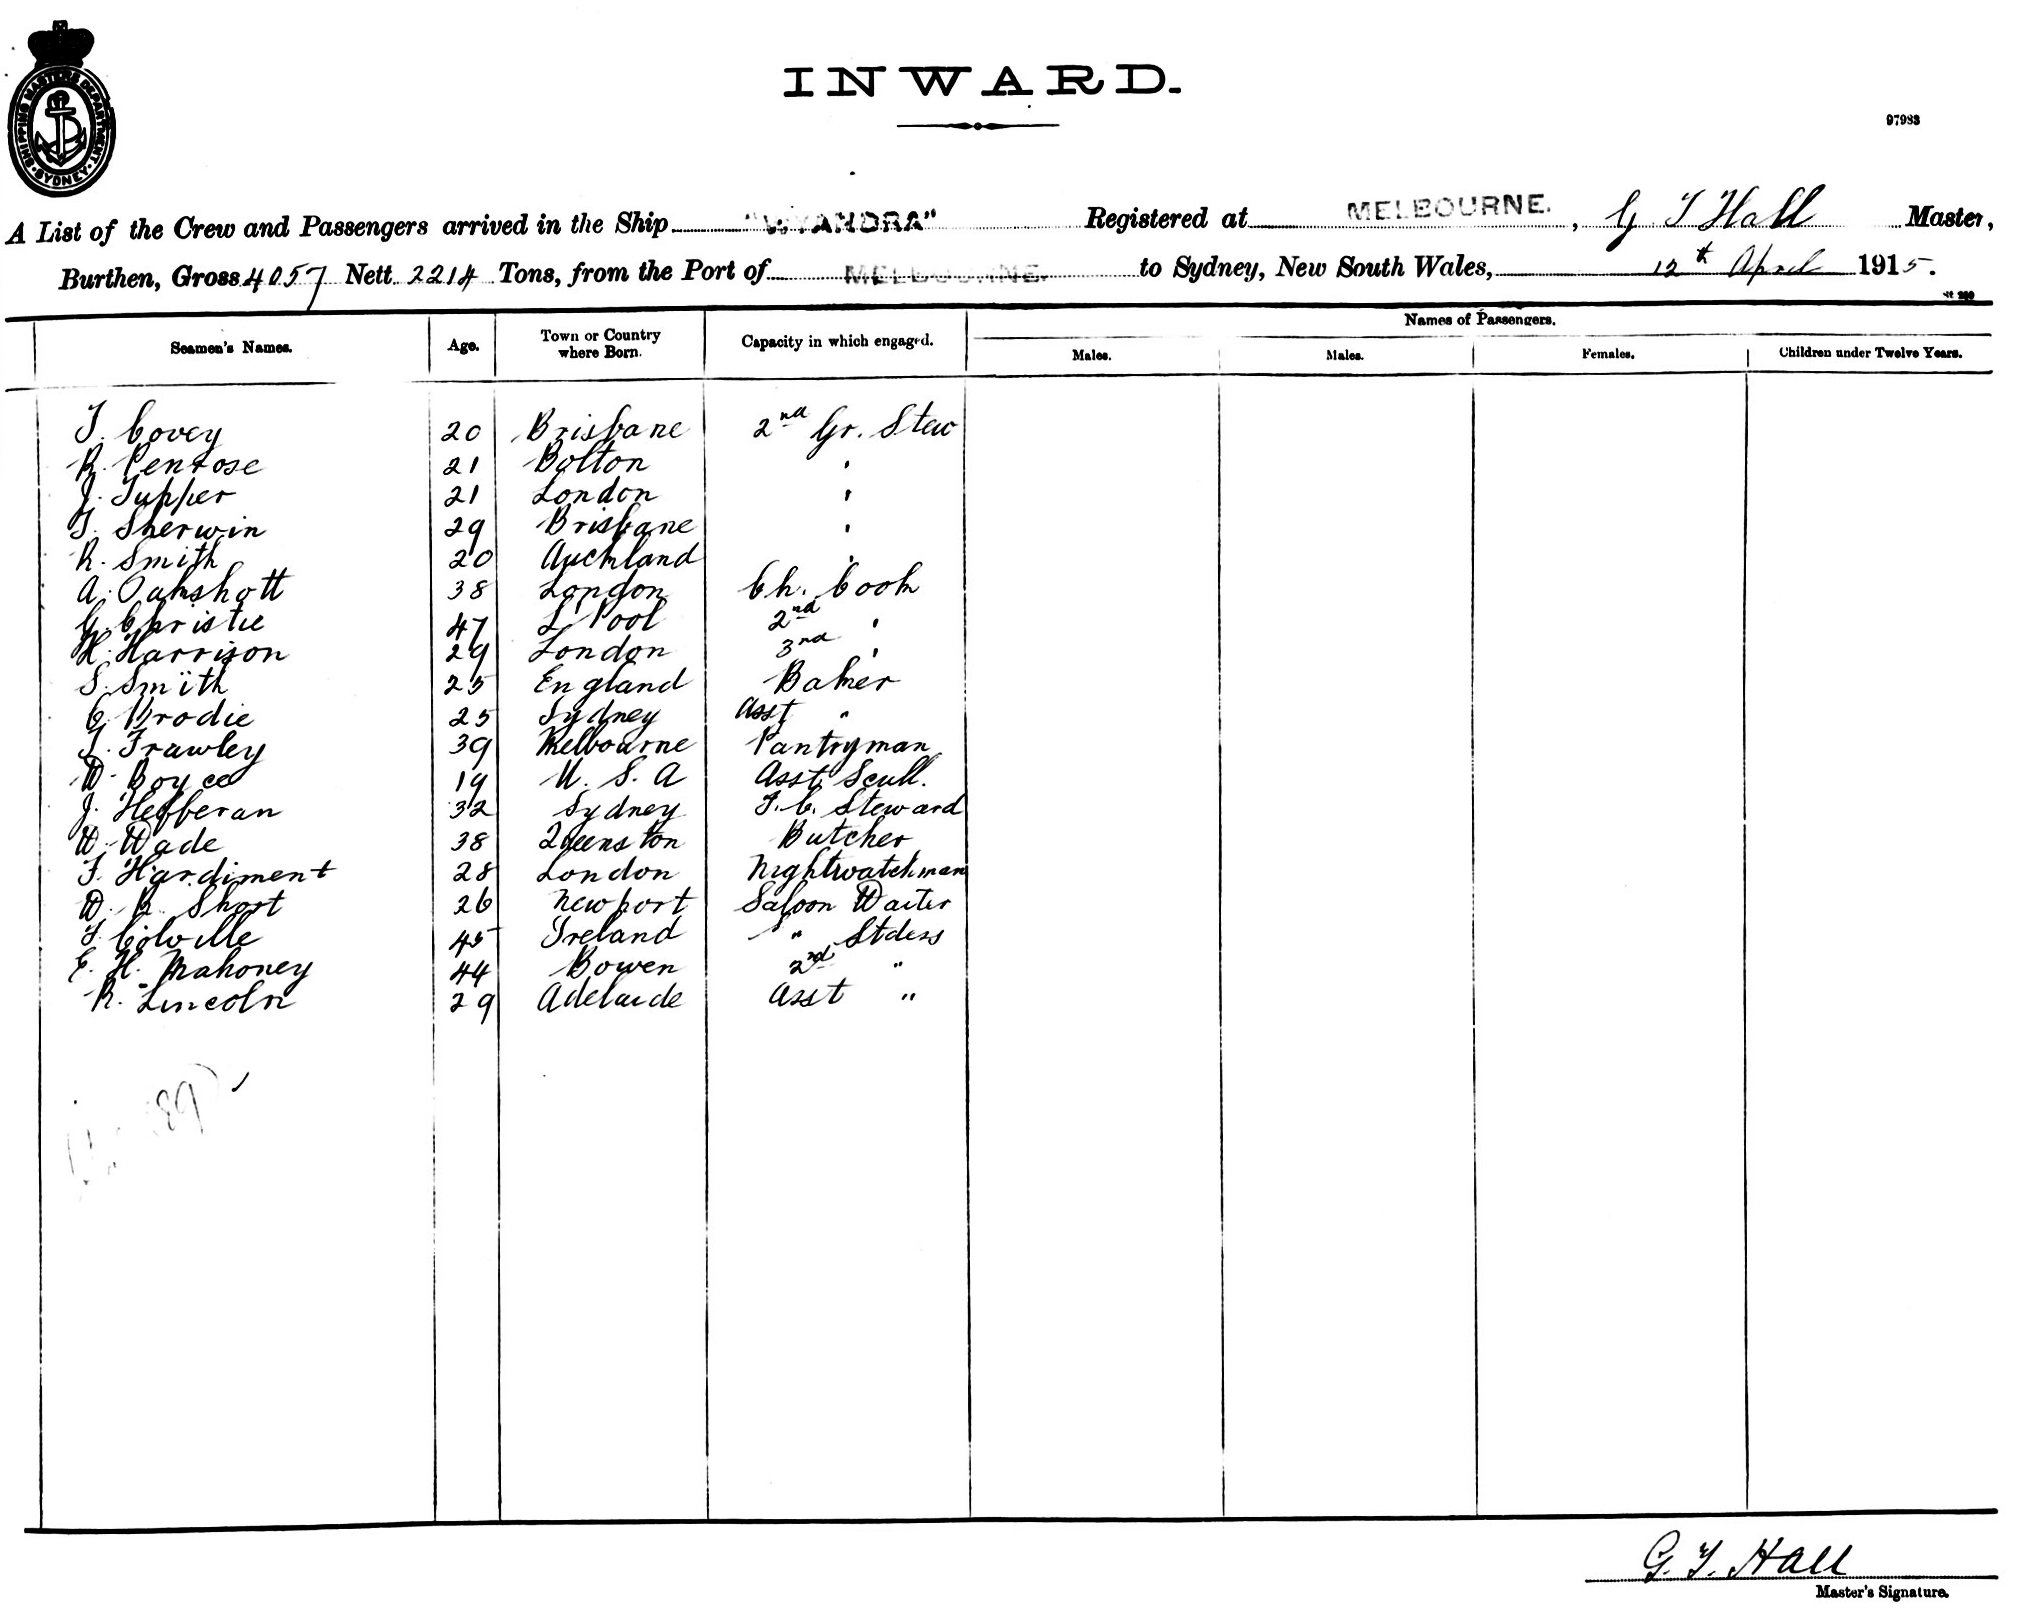 INWARD.
SHIPPING MASTERS DEPARTMENT. SYDNEY.
97983
A List of the Crew and Passengers arrived in the Ship "WYANDRA" Registered at MELBOURNE. , G T Hall Master,
Burthen, Gross 4057 Nett 2214 Tons, from the Port of MELBOURNE. to Sydney, New South Wales, 12th April 1915.
Seamen's Names. Age. Town or Country where Born. Capacity in which engaged. Names of Passengers.
Males. Males. Females. Children under Twelve Years.
T. Covey 20 Brisbane 2nd Gr. Stew
R. Penrose 21 Bolton "
J. Tupper 21 London "
T. Sherwin 29 Brisbane "
R. Smith 20 Auckland "
A. Oakshott 38 London Ch. Cook
G. Christie 47 L'Pool 2nd "
H. Harrison 29 London 3rd "
S. Smith 25 England Baker
C. Brodie 25 Sydney Asst "
T. Frawley 39 Melbourne Pantryman
W. Boyce 19 U. S. A Asst Scull.
J. Hefferan 32 Sydney F. C. Steward
W. Wade 38 Queenston Butcher
F. Hardiment 28 London Nightwatchman
W. R. Short 26 Newport Saloon Waiter
T. Colville 45 Ireland " Stdess
E. H. Mahoney 44 Bowen 2nd "
R. Lincoln 29 Adelaide Asst "
89
G. T. Hall
Master's Signature.